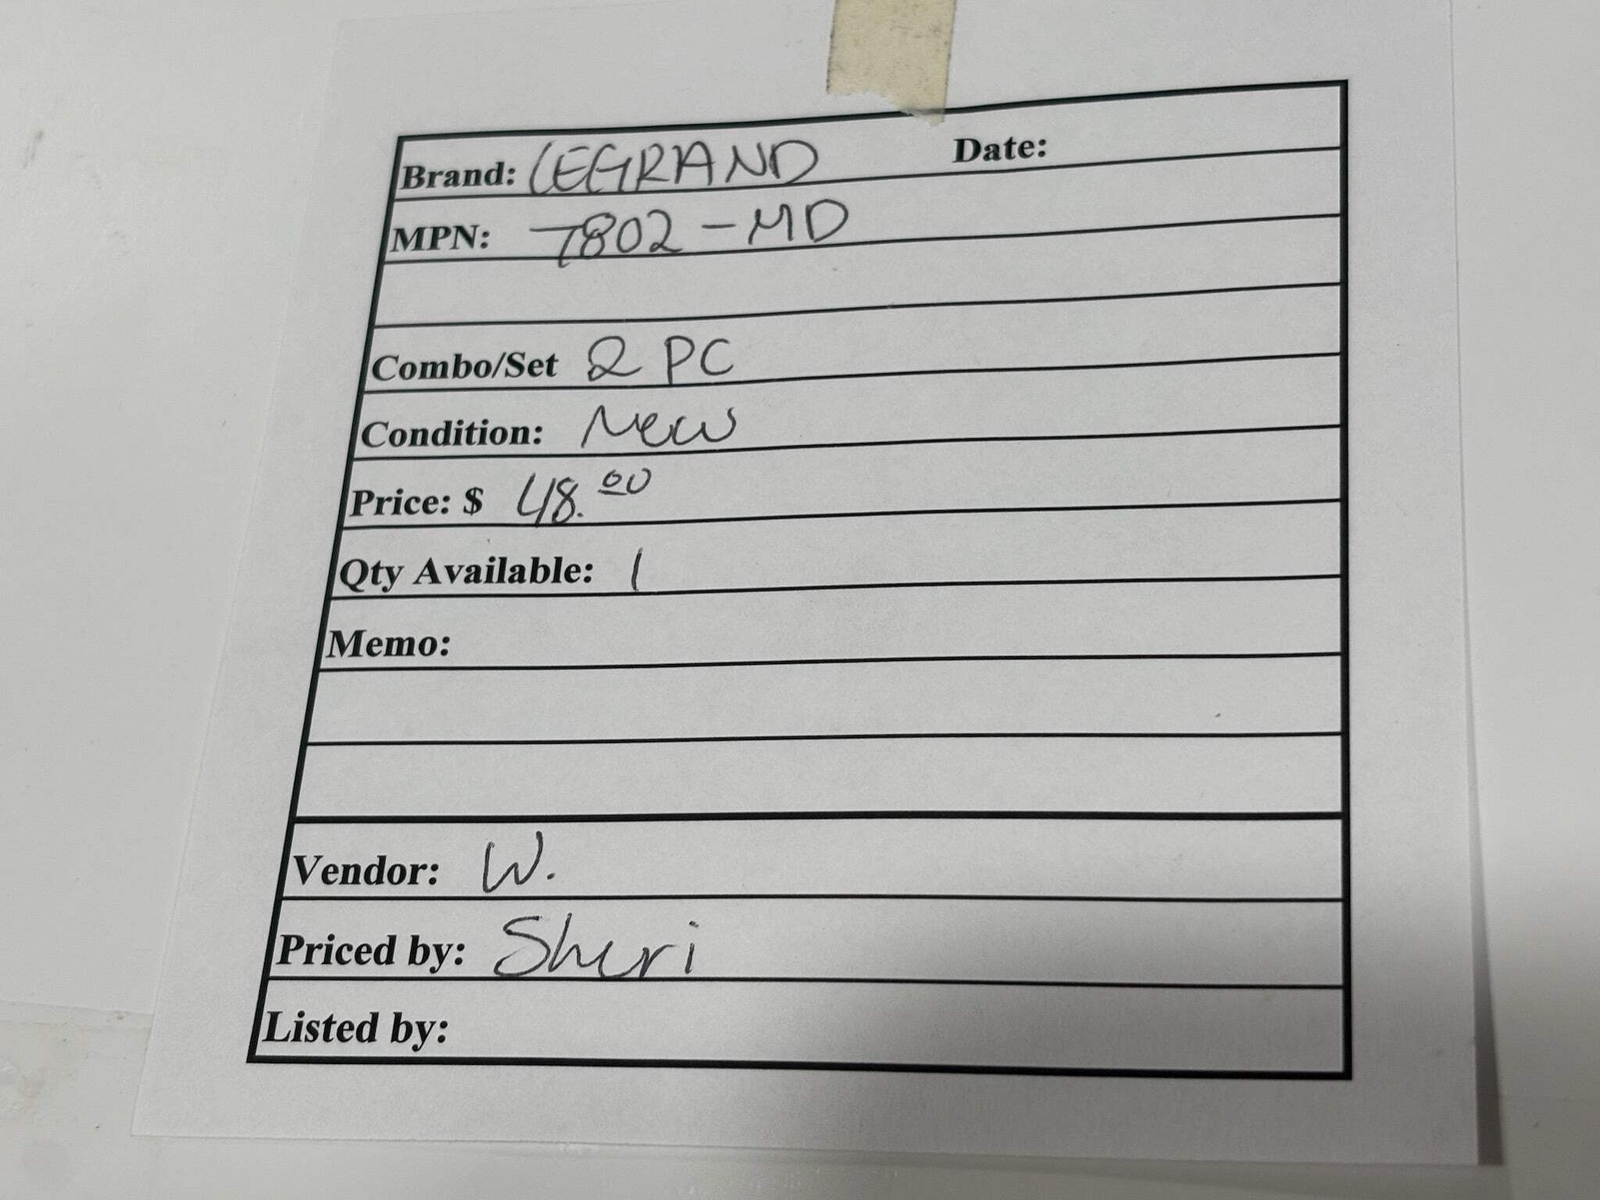 Brand: LEGRAND Date:
MPN: 7802-MD
Combo/Set 2 PC
Condition: New
Price: $ 48.00
Qty Available: 1
Memo:
Vendor: W.
Priced by: Sheri
Listed by: